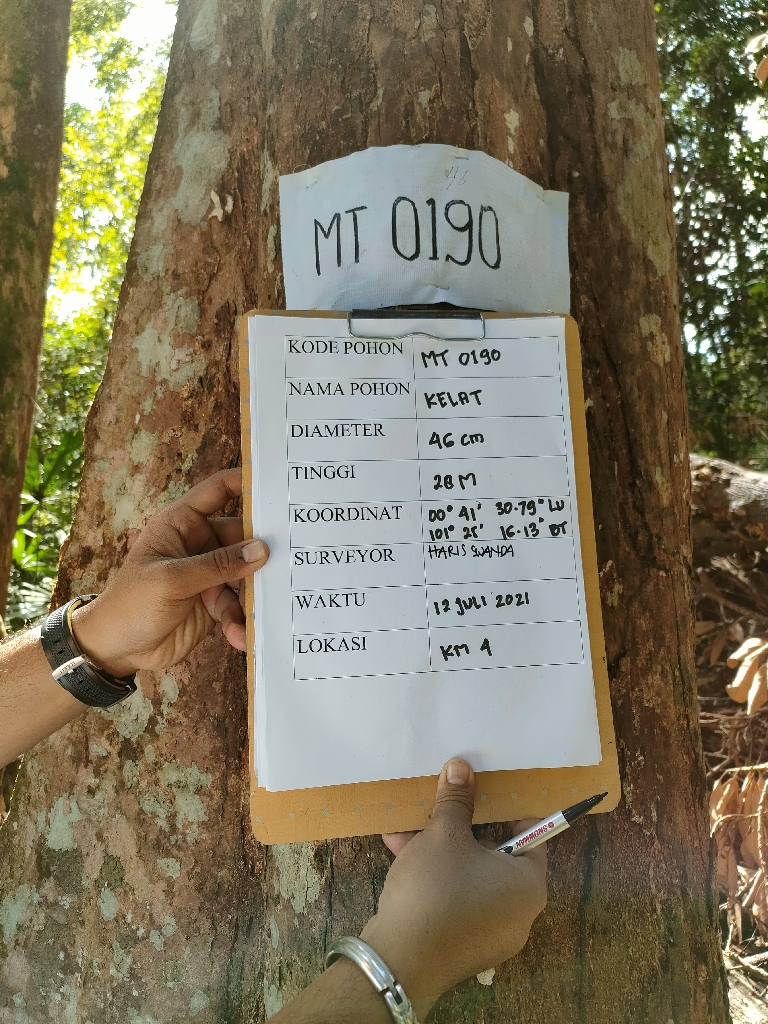 MT 0190
KODE POHON MT 0190
NAMA POHON KELAT
DIAMETER 46 cm
TINGGI 28 M
KOORDINAT 00° 41' 30.79" LU
101° 25' 16.13" BT
SURVEYOR HARIS SWANDA
WAKTU 12 JULI 2021
LOKASI KM 4
SNOWMAN